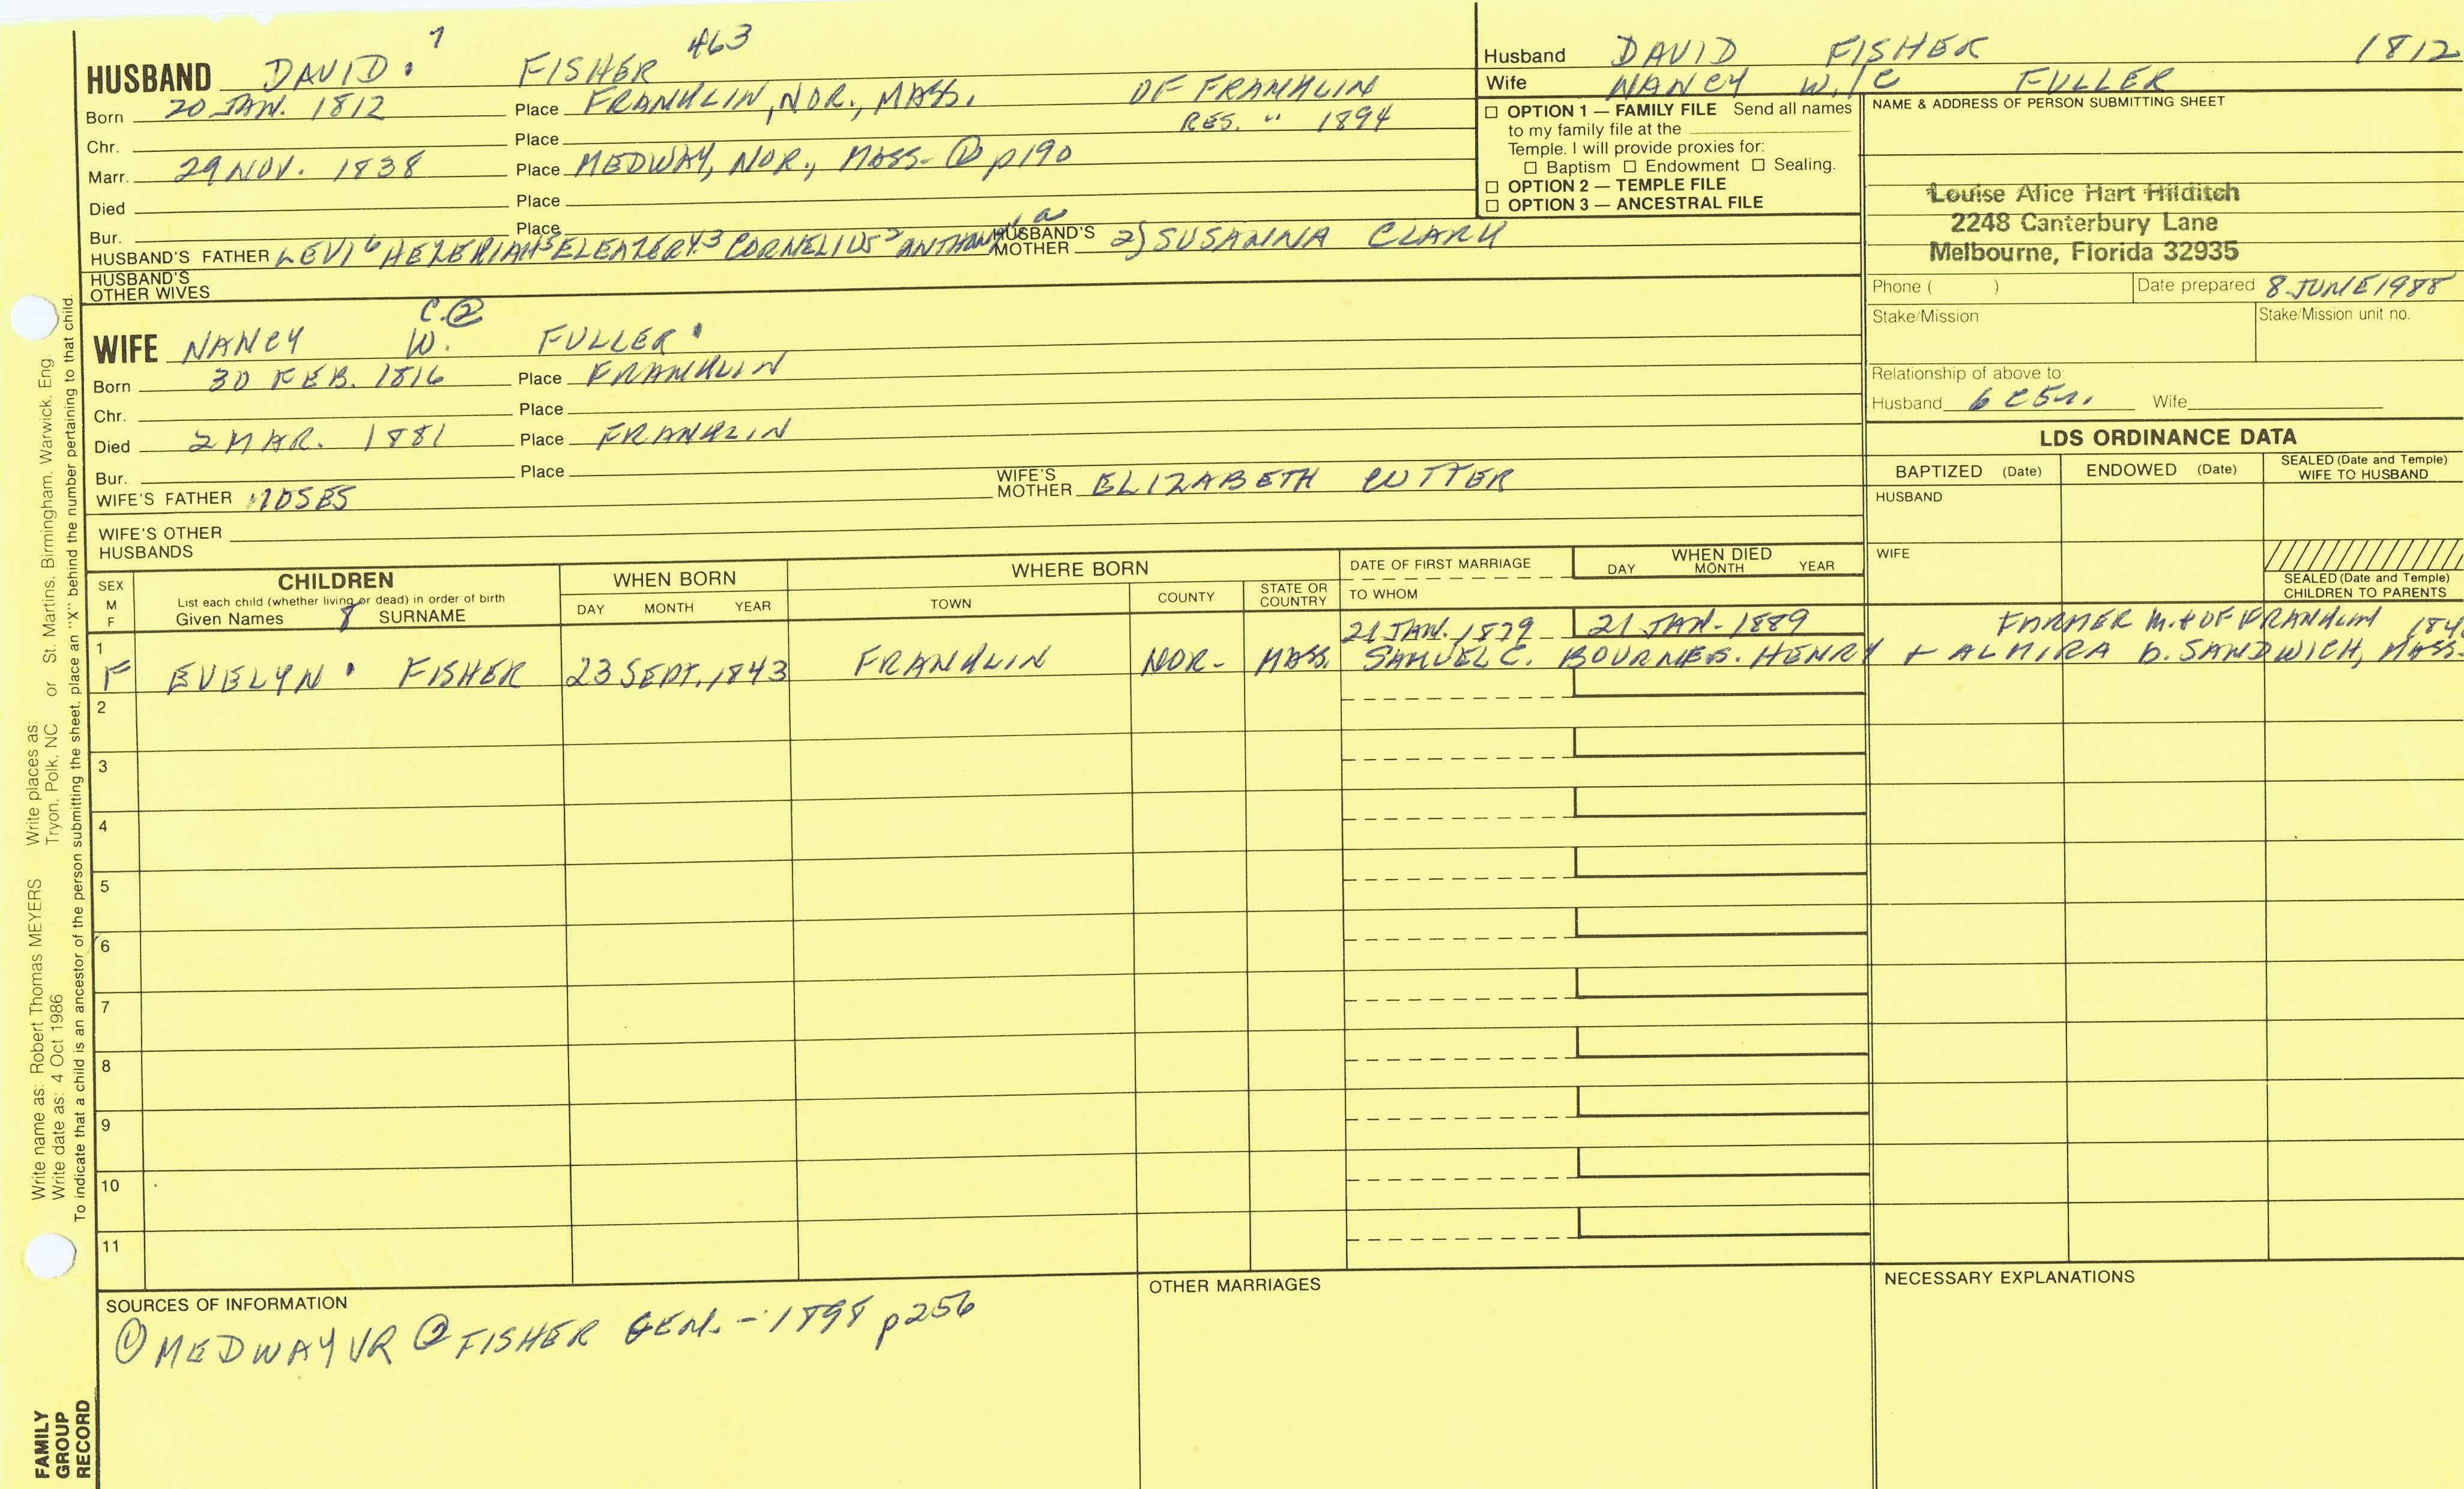 7 463
HUSBAND DAVID. FISHER
Born 20 JAN. 1812 Place FRANKLIN, NOR., MASS. OF FRANKLIN
Chr. Place RES. " 1894
Marr. 29 NOV. 1838 Place MEDWAY, NOR., MASS- ① p190
Died Place
Bur. Place
HUSBAND'S FATHER LEVI 6 HEZEKIAH 5 ELEAZER 4.3 CORNELIUS 2 HUSBAND'S MOTHER 2) SUSANNA CLARK
HUSBAND'S OTHER WIVES
C.②
WIFE NANCY W. FULLER.
Born 30 FEB. 1816 Place FRANKLIN
Chr. Place
Died 2 MAR. 1881 Place FRANKLIN
Bur. Place
WIFE'S FATHER MOSES WIFE'S MOTHER ELIZABETH CUTTER
WIFE'S OTHER HUSBANDS
Husband DAVID FISHER 1812
Wife NANCY W./C FULLER
☐ OPTION 1 — FAMILY FILE Send all names
to my family file at the
Temple. I will provide proxies for:
☐ Baptism ☐ Endowment ☐ Sealing.
☐ OPTION 2 — TEMPLE FILE
☐ OPTION 3 — ANCESTRAL FILE
NAME & ADDRESS OF PERSON SUBMITTING SHEET
Louise Alice Hart Hilditch
2248 Canterbury Lane
Melbourne, Florida 32935
Phone ( ) Date prepared 8 JUNE 1988
Stake/Mission Stake/Mission unit no.
Relationship of above to:
Husband 6 C5n. Wife
LDS ORDINANCE DATA
BAPTIZED (Date) ENDOWED (Date) SEALED (Date and Temple) WIFE TO HUSBAND
HUSBAND
WIFE
SEALED (Date and Temple)
CHILDREN TO PARENTS
SEX
M
F
CHILDREN
List each child (whether living or dead) in order of birth
Given Names 8 SURNAME
WHEN BORN
DAY MONTH YEAR
WHERE BORN
TOWN COUNTY STATE OR COUNTRY
DATE OF FIRST MARRIAGE
TO WHOM
WHEN DIED
DAY MONTH YEAR
1 21 JAN. 1879 21 JAN- 1889 FARMER M.+ OF FRANKLIN 184
F EVELYN . FISHER 23 SEPT. 1843 FRANKLIN NOR- MASS. SAMUEL C. BOURNE S. HENRY + ALMIRA B. SANDWICH, MASS.
2
3
4
5
6
7
8
9
10
11
SOURCES OF INFORMATION
① MEDWAY VR ② FISHER GEN. - 1898 p256
OTHER MARRIAGES
NECESSARY EXPLANATIONS
Write name as: Robert Thomas MEYERS Write places as:
Write date as: 4 Oct 1986 Tryon, Polk, NC or St. Martins, Birmingham, Warwick, Eng
To indicate that a child is an ancestor of the person submitting the sheet, place an "X" behind the number pertaining to that child.
FAMILY
GROUP
RECORD